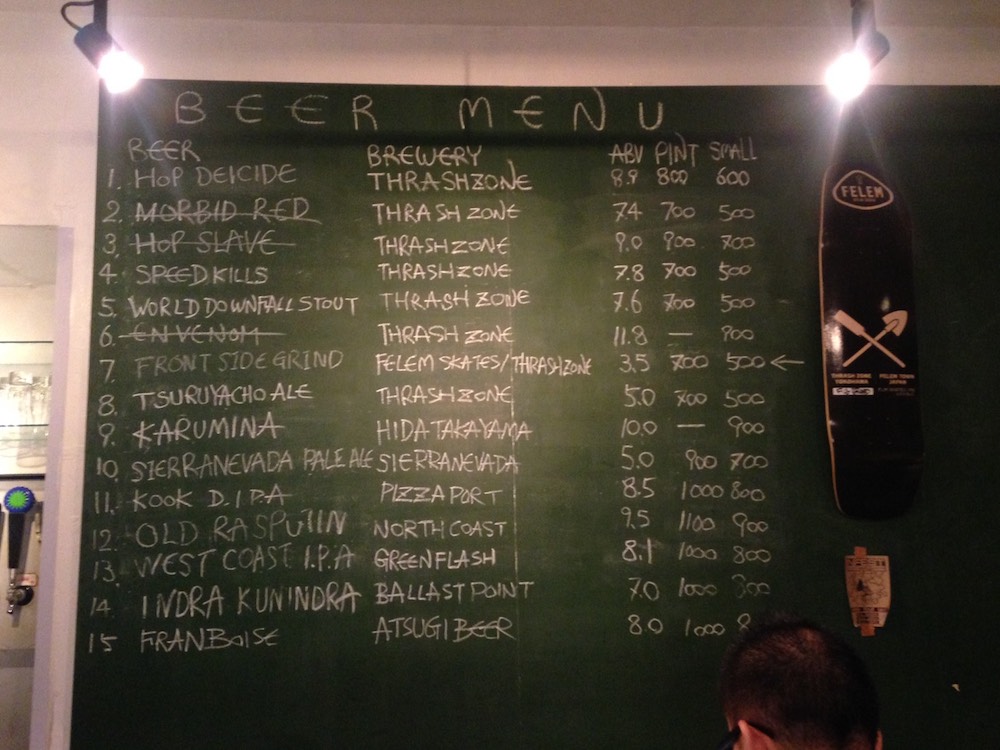 BEER MENU
BEER BREWERY ABV PINT SMALL
1. HOP DEICIDE THRASHZONE 8.9 800 600
2. MORBID RED THRASH ZONE 7.4 700 500
3. HOP SLAVE THRASHZONE 9.0 900 700
4. SPEED KILLS THRASHZONE 7.8 700 500
5. WORLD DOWNFALL STOUT THRASH ZONE 7.6 700 500
6. ENVENOM THRASH ZONE 11.8 — 900
7 FRONTSIDE GRIND FELEM SKATES/THRASHZONE 3.5 700 500 ←
8. TSURUYACHO ALE THRASHZONE 5.0 700 500
9. KARUMINA HIDATAKAYAMA 10.0 — 900
10. SIERRANEVADA PALE ALE SIERRANEVADA 5.0 900 700
11. KOOK D.I.P.A PIZZA PORT 8.5 1000 800
12. OLD RASPUTIN NORTH COAST 9.5 1100 900
13. WEST COAST I.P.A GREENFLASH 8.1 1000 800
14. INDRA KUNINDRA BALLAST POINT 7.0 1000 800
15 FRANBOISE ATSUGI BEER 8.0 1000 8
FELEM
THRASH ZONE FELEM TOWN
YOKOHAMA JAPAN